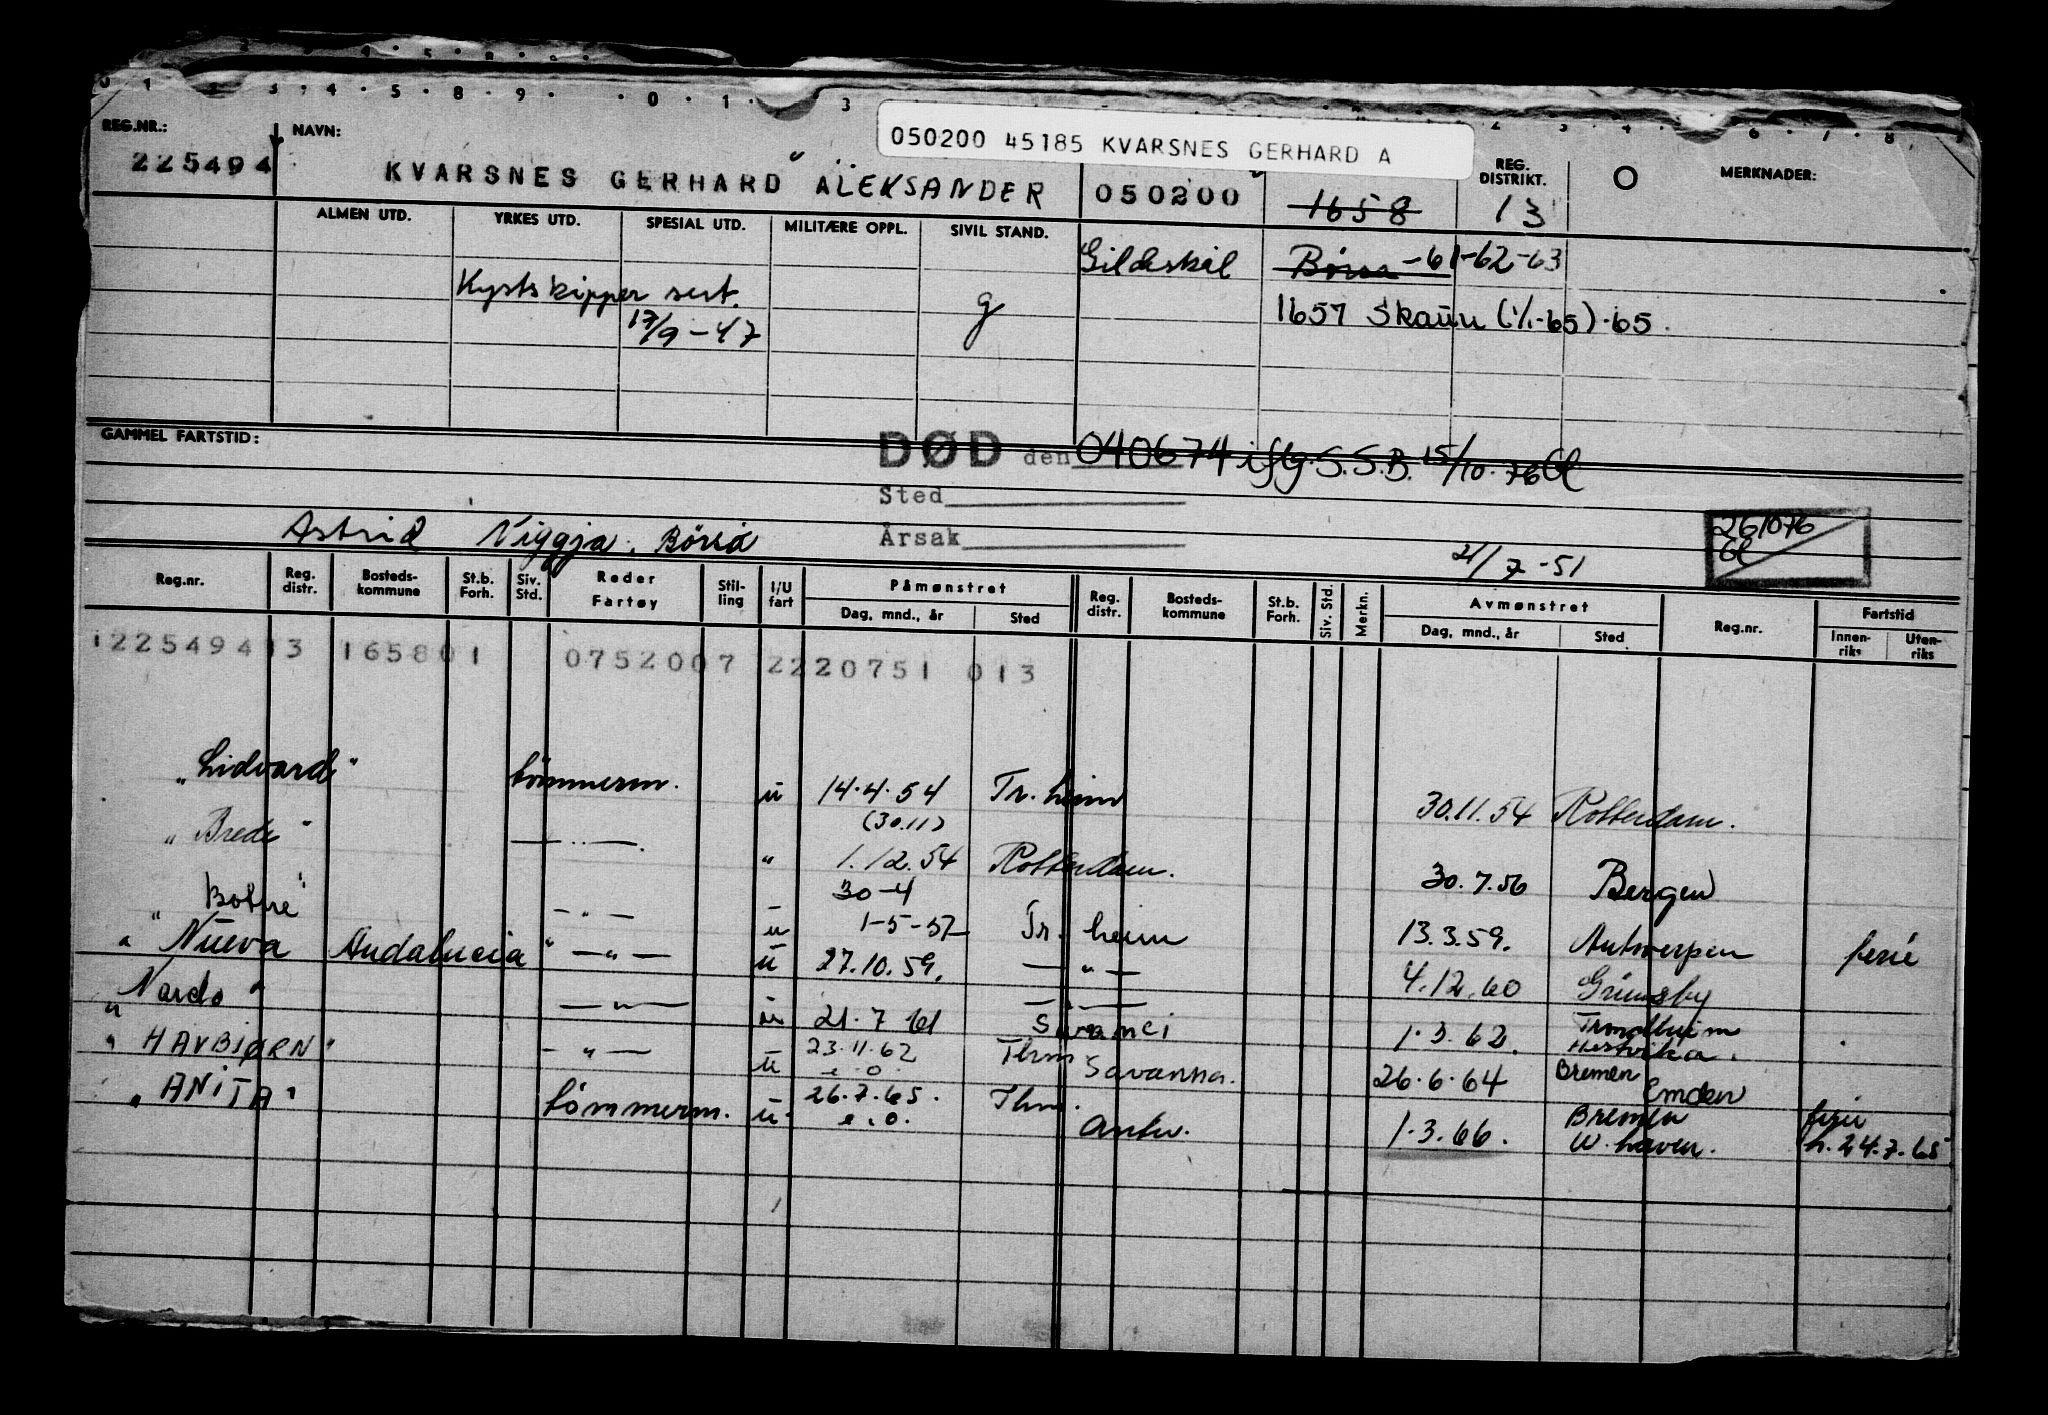 050200 45185 KVARSNES GERHARD A
REG.NR.: NAVN: REG. DISTRIKT. O MERKNADER:
225494 KVARSNES GERHARD ALEKSANDER 050200 1658 13
ALMEN UTD. YRKES UTD. SPESIAL UTD. MILITÆRE OPPL. SIVIL STAND.
Gildeskål Börsa -61-62-63
Kystskipper sert. g 1657 Skaun (1/1-65)-65.
17/9-47
GAMMEL FARTSTID:
DØD den 040674 iflg. S.S.B. 15/10-76 Gl
Sted
Årsak
261076
Gl
Astrid Viggja, Börsa 21/7-51
Reg.nr. Reg. distr. Bosteds-kommune St.b. Forh. Siv. Std. Reder Fartøy Stil-ling I/U fart Påmønstret Reg. distr. Bosteds-kommune St.b. Forh. Siv. Std. Merkn. Avmønstret Reg.nr. Fartstid
Dag, mnd., år Sted Dag, mnd., år Sted Innen-riks Uten-riks
122549413 165801 0752007 2220751 013
"Lidvard" tömmerm. u 14.4.54 Tr.heim 30.11.54 Rotterdam.
(30.11)
"Brede" —"— " 1.12.54 Rotterdam. 30.7.56 Bergen
30-4
"Botne" —"— u 1-5-57 Tr.heim 13.3.59. Antwerpen ferie
"Nueva Andalucia" —"— u 27.10.59. —"— 4.12.60 Grimsby
"Nardo" —"— u 21.7.61 —"— 1.3.62. Trondheim
Hestvika.
"HAVBJØRN" —"— u 23.11.62 Thm Savanna. 26.6.64 Bremen Emden
e.o.
"ANITA" tömmerm. u. 26.7.65. Thm. Antw. 1.3.66. Bremen W.haven. ferie
e.o. h. 24.7.65